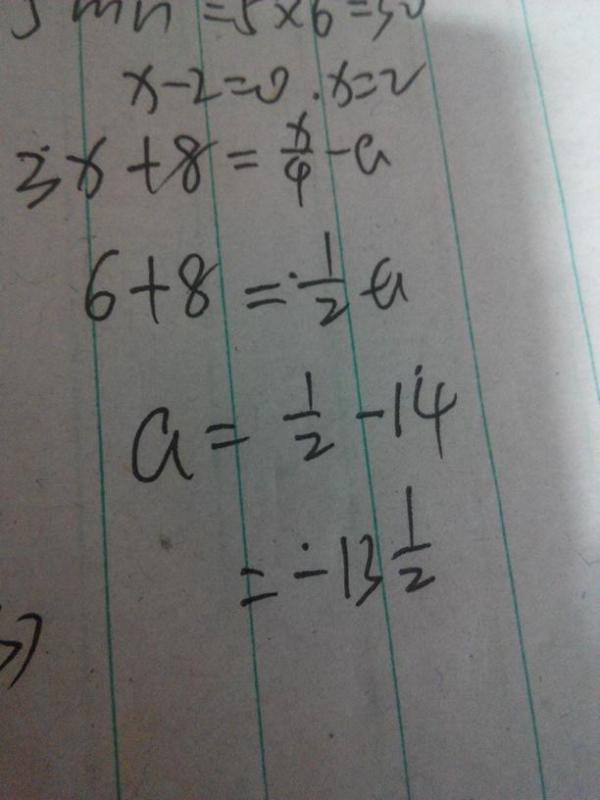 mn=5×6=30
x-2=0.x=2
3x+8=x/4-a
6+8=1/2-a
a=1/2-14
=-13 1/2